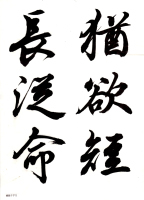 猶欲短
長從命